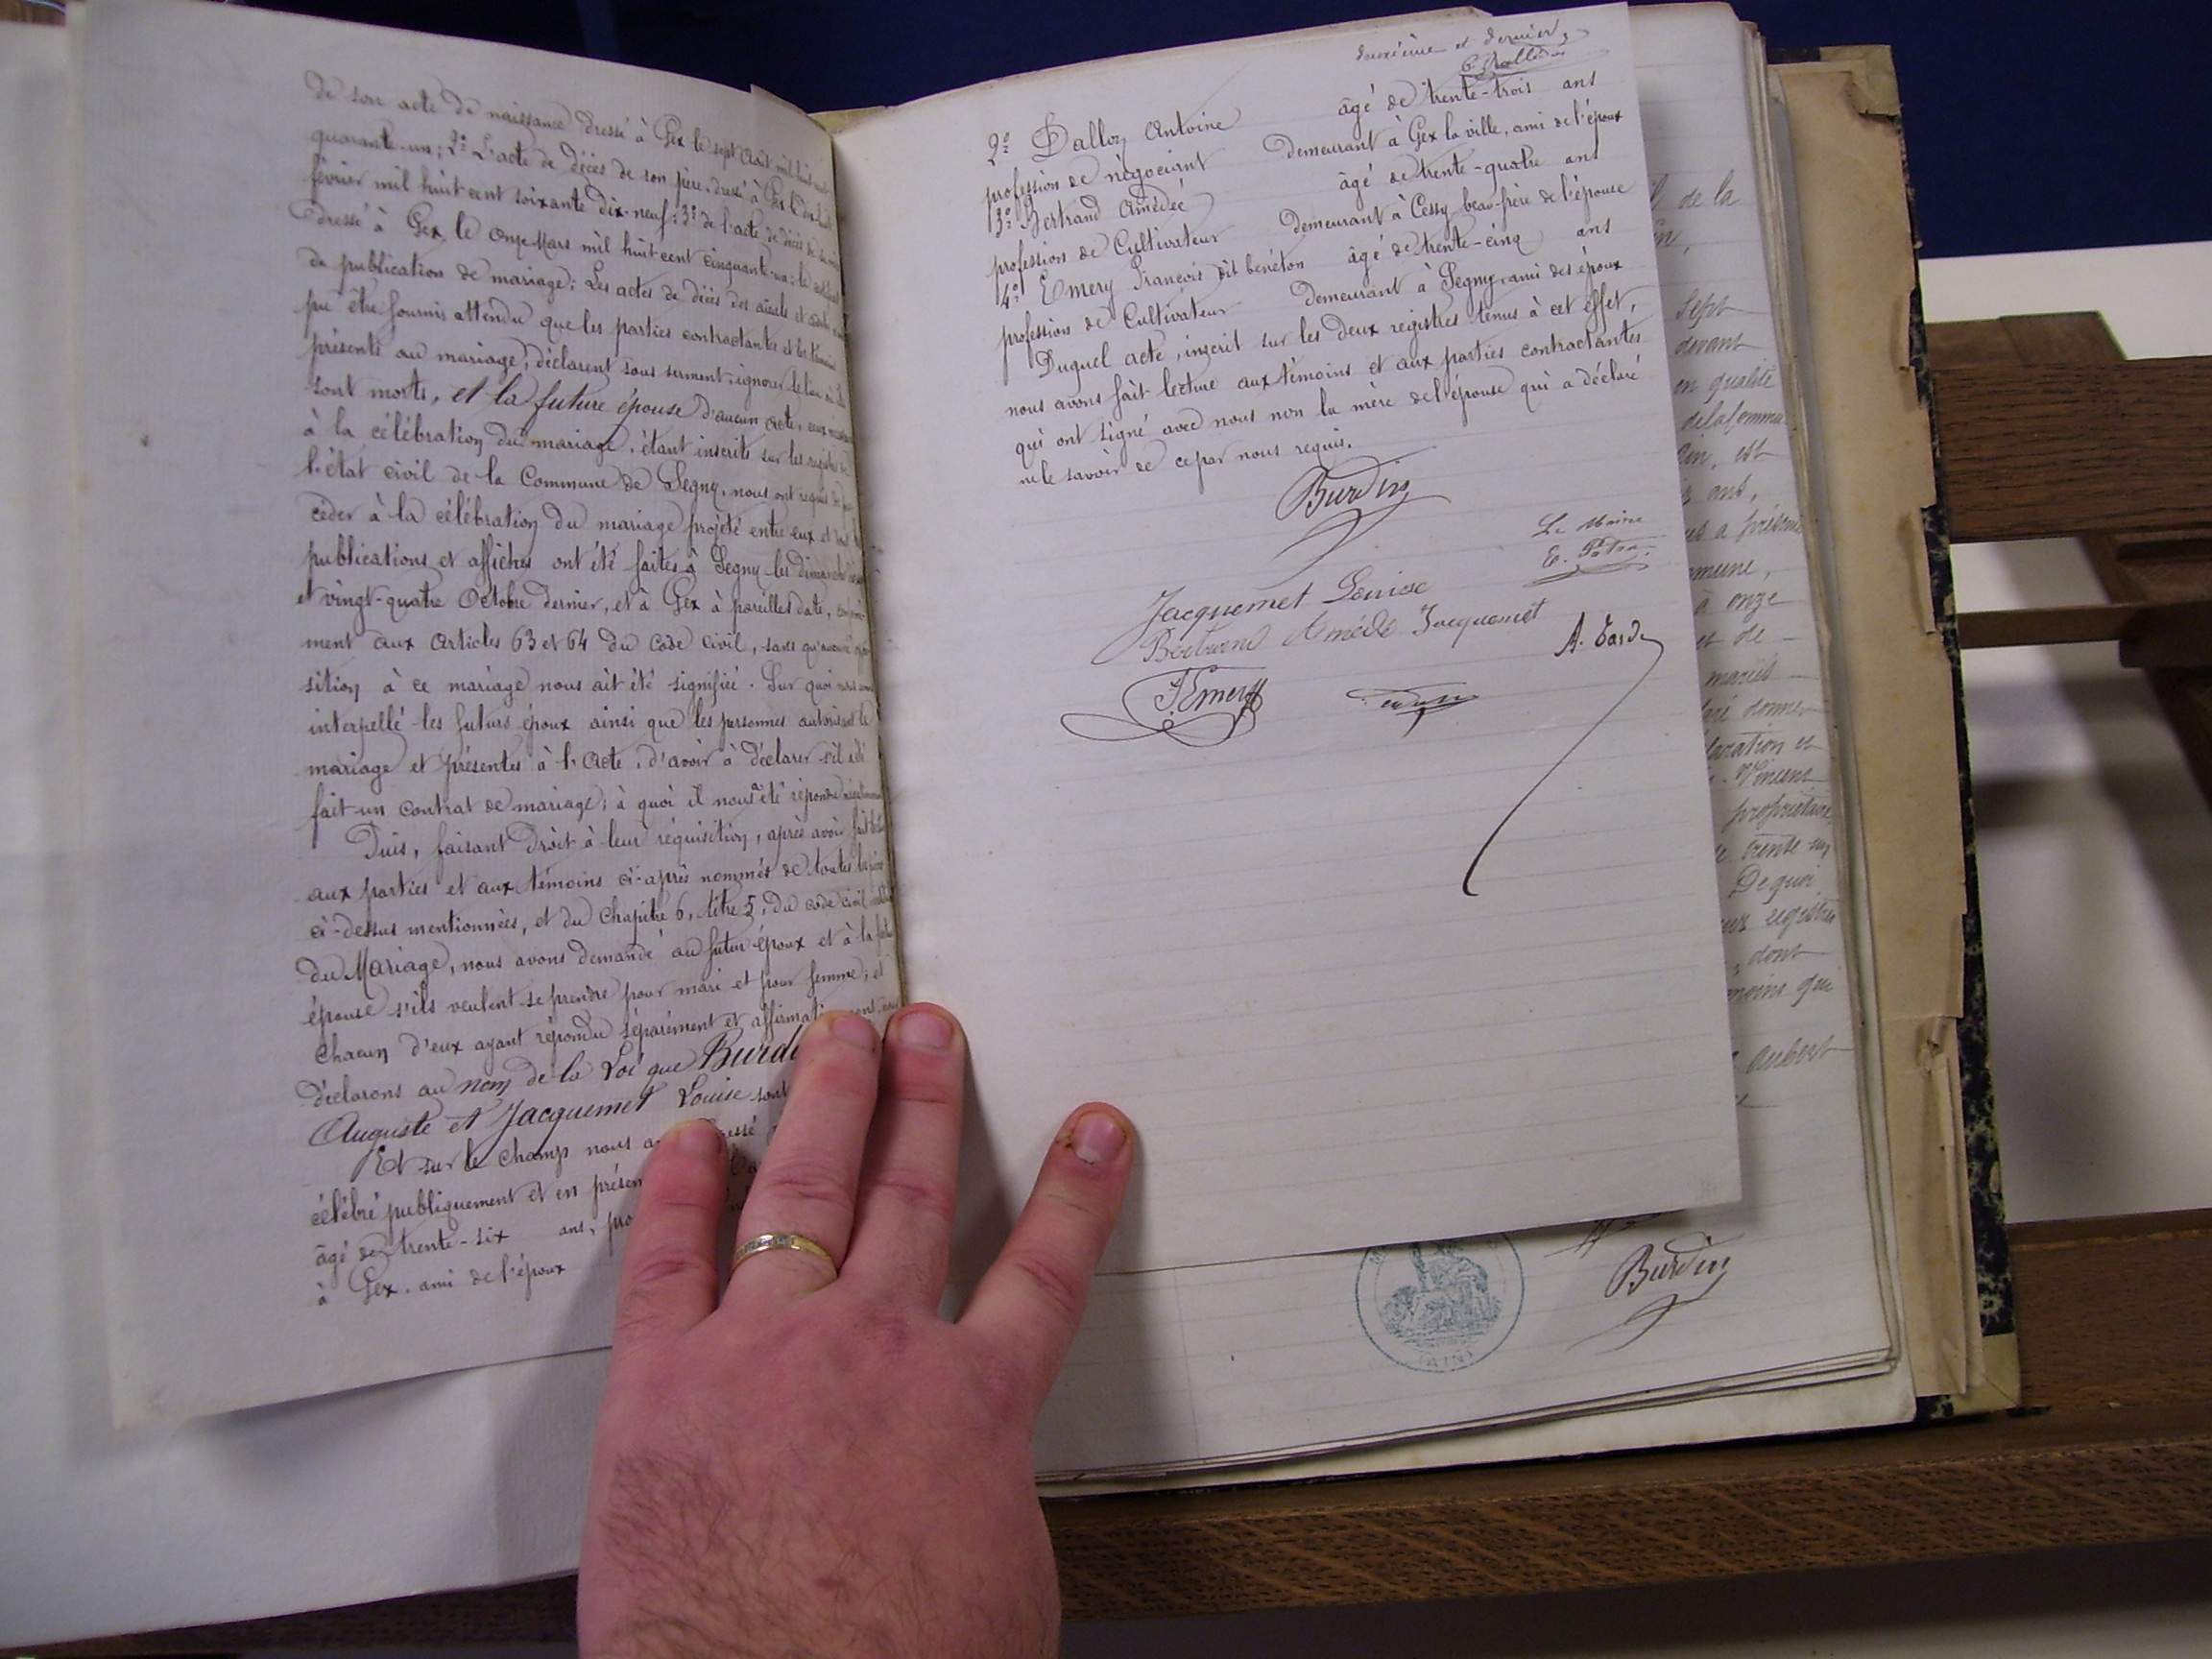 de son acte de naissance dressé à Gex le sept Août mil huit cent
quarante-un; 2º L'acte de décès de son père, dressé à Gex le dix-huit
février mil huit cent soixante dix-neuf; 3º de l'acte de décès de sa mère
dressé à Gex, le onze Mars mil huit cent cinquante-un; le certificat
de publication de mariage; Les actes de décès des aïeuls et
pu être fournis attendu que les parties contractantes et les témoins
présents au mariage, déclarent sous serment, ignorer le lieu où ils
sont morts, et la future épouse d'aucun acte, eux nécessaires
à la célébration du mariage, étant inscrits sur les registres de
l'état civil de la Commune de Segny, nous ont requis de pro
céder à la célébration du mariage projeté entre eux et dont les
publications et affiches ont été faites à Segny les dimanches
et vingt-quatre Octobre dernier, et à Gex à pareilles date, conformé-
ment aux articles 63 et 64 du code civil, sans qu'aucune oppo
sition à ce mariage nous ait été signifiée. Sur quoi nous avons
interpellé les futurs époux ainsi que les personnes autorisant le
mariage et présentes à l'acte, d'avoir à déclarer s'il a été
fait un contrat de mariage; à quoi il nous a été répondu négativement
Puis, faisant droit à leur réquisition, après avoir fait lecture
aux parties et aux témoins ci-après nommés de toutes les pièces
ci-dessus mentionnées, et du Chapitre 6, titre 5, du code civil intitulé
du Mariage, nous avons demandé au futur époux et à la future
épouse s'ils veulent se prendre pour mari et pour femme; et
chacun d'eux ayant répondu séparément et affirmativement, nous
déclarons au nom de la Loi que Burdin
Auguste et Jacquemet Louise sont
Et sur le champ nous avons dressé
célébré publiquement et en présen
âgé de trente-six ans, pro
à Gex, ami de l'époux
deuxième et dernier,
2º Dalloz Antoine âgé de trente-trois ans
profession de négociant demeurant à Gex la ville, ami de l'époux
3º Bertrand Amédée âgé de trente-quatre ans
profession de Cultivateur demeurant à Cessy beau-frère de l'épouse
4º Emery François dit benéton âgé de trente-cinq ans
profession de Cultivateur demeurant à Segny, ami des époux
Duquel acte, inscrit sur les deux registres tenus à cet effet,
nous avons fait lecture aux témoins et aux parties contractantes
qui ont signé avec nous non la mère de l'épouse qui a déclaré
ne le savoir de ce par nous requis.
Burdin
Le Maire
Jacquemet Louise
Bertrand Amédé Jacquemet
F. Emery
de la
Sept
devant
en qualité
de la Commu
Ain, est
ans,
a présenté
mmune,
à onze
et de
mariés
donner
laration et
Vincent
propriétaire
trente-un
De quoi
registres
, dont
moins que
Aubert
Burdin
(AIN)